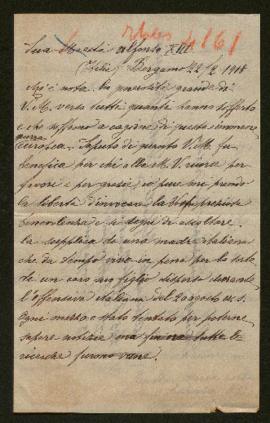 4161
Sua Maestà Alfonso XIII
(Italia) Bergamo 22/2 1918
Mi è nota la generosità grande di
V. M. verso tutti quanti hanno sofferto
e che soffrono a cagione di questa immane
guerra
europea. Saputo di quanto V. M. fu
benefica per chi alla M. V. ricorre per
favori e per grazie, io pure mi prendo
la libertà d'invocare la Vostra preziosa
benevolenza e si degni di ascoltare
la supplica di una madre italiana
che da tempo vive in pena per la sorte
di un caro suo figlio disperso durante
l'offensiva italiana del 20 agosto u. s.
Ogni mezzo è stato tentato per poterne
sapere notizie ma finora tutte le
ricerche furono vane.